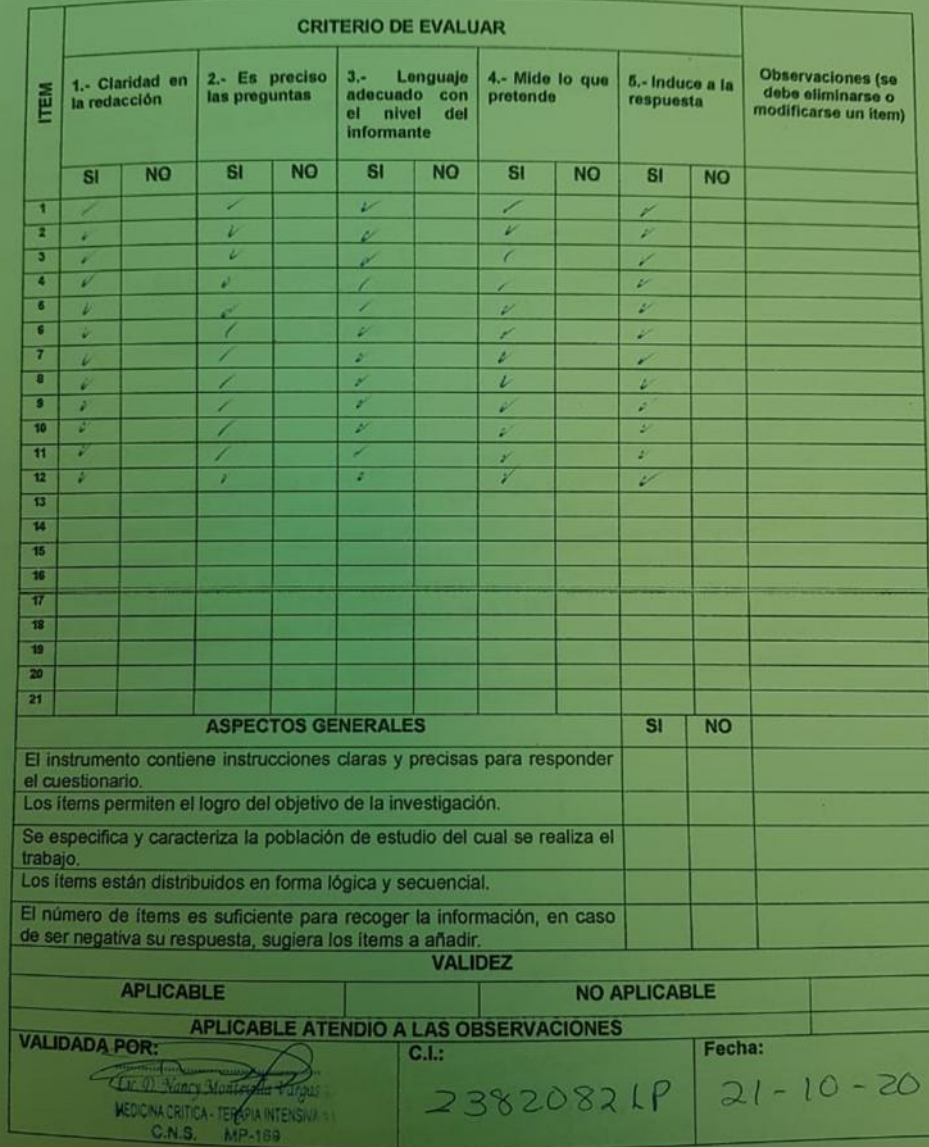 CRITERIO DE EVALUAR
ITEM
1.- Claridad en
la redacción
2.- Es preciso
las preguntas
3.- Lenguaje
adecuado con
el nivel del
informante
4.- Mide lo que
pretende
5.- Induce a la
respuesta
Observaciones (se
debe eliminarse o
modificarse un item)
SI NO SI NO SI NO SI NO SI NO
1 ✓ ✓ ✓ ✓ ✓
2 ✓ ✓ ✓ ✓ ✓
3 ✓ ✓ ✓ ✓ ✓
4 ✓ ✓ ✓ ✓ ✓
5 ✓ ✓ ✓ ✓ ✓
6 ✓ ✓ ✓ ✓ ✓
7 ✓ ✓ ✓ ✓ ✓
8 ✓ ✓ ✓ ✓ ✓
9 ✓ ✓ ✓ ✓ ✓
10 ✓ ✓ ✓ ✓ ✓
11 ✓ ✓ ✓ ✓ ✓
12 ✓ ✓ ✓ ✓ ✓
13
14
15
16
17
18
19
20
21
ASPECTOS GENERALES SI NO
El instrumento contiene instrucciones claras y precisas para responder
el cuestionario.
Los ítems permiten el logro del objetivo de la investigación.
Se especifica y caracteriza la población de estudio del cual se realiza el
trabajo.
Los ítems están distribuidos en forma lógica y secuencial.
El número de ítems es suficiente para recoger la información, en caso
de ser negativa su respuesta, sugiera los ítems a añadir.
VALIDEZ
APLICABLE NO APLICABLE
APLICABLE ATENDIO A LAS OBSERVACIONES
VALIDADA POR:
Lic. D. Nancy Vargas
MEDICINA CRITICA - TERAPIA INTENSIVA
C.N.S. MP-169
C.I.:
2382082 LP
Fecha:
21-10-20